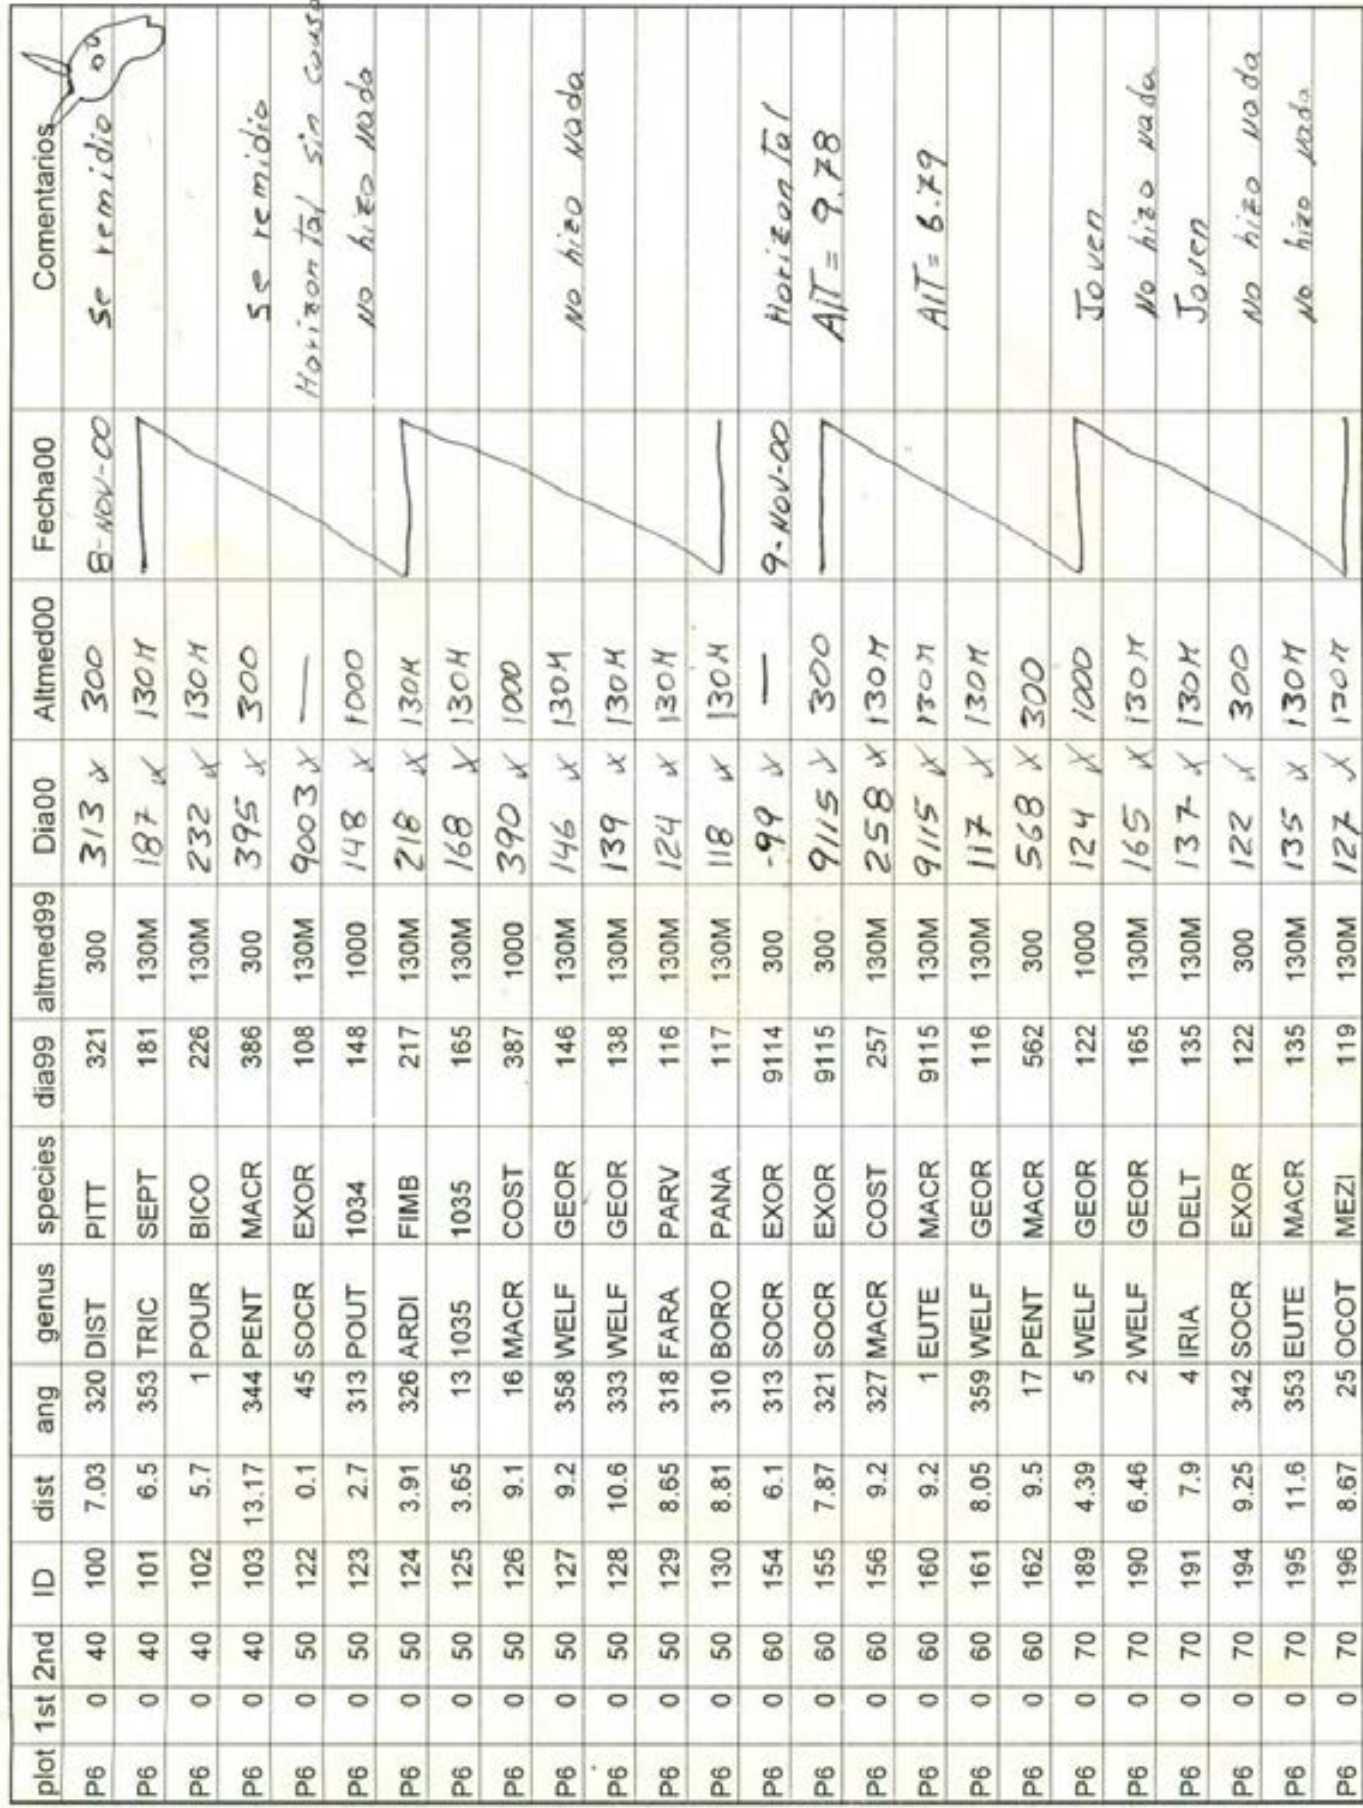 plot 1st 2nd ID dist ang genus species dia99 altmed99 Dia00 Altmed00 Fecha00 Comentarios
P6 0 40 100 7.03 320 DIST PITT 321 300 313 x 300 8-NOV-00 Se remidio
P6 0 40 101 6.5 353 TRIC SEPT 181 130M 187 x 130M
P6 0 40 102 5.7 1 POUR BICO 226 130M 232 x 130M
P6 0 40 103 13.17 344 PENT MACR 386 300 395 x 300 Se remidio
P6 0 50 122 0.1 45 SOCR EXOR 108 130M 9003 x — Horizontal sin causa
P6 0 50 123 2.7 313 POUT 1034 148 1000 148 x 1000 No hizo nada
P6 0 50 124 3.91 326 ARDI FIMB 217 130M 218 x 130M
P6 0 50 125 3.65 13 1035 1035 165 130M 168 x 130M
P6 0 50 126 9.1 16 MACR COST 387 1000 390 x 1000
P6 0 50 127 9.2 358 WELF GEOR 146 130M 146 x 130M No hizo nada
P6 0 50 128 10.6 333 WELF GEOR 138 130M 139 x 130M
P6 0 50 129 8.65 318 FARA PARV 116 130M 124 x 130M
P6 0 50 130 8.81 310 BORO PANA 117 130M 118 x 130M
P6 0 60 154 6.1 313 SOCR EXOR 9114 300 -99 x — 9-NOV-00 Horizontal
P6 0 60 155 7.87 321 SOCR EXOR 9115 300 9115 x 300 AlT = 9.78
P6 0 60 156 9.2 327 MACR COST 257 130M 258 x 130M
P6 0 60 160 9.2 1 EUTE MACR 9115 130M 9115 x 130M AlT = 6.79
P6 0 60 161 8.05 359 WELF GEOR 116 130M 117 x 130M
P6 0 60 162 9.5 17 PENT MACR 562 300 568 x 300
P6 0 70 189 4.39 5 WELF GEOR 122 1000 124 x 1000 Joven
P6 0 70 190 6.46 2 WELF GEOR 165 130M 165 x 130M No hizo nada
P6 0 70 191 7.9 4 IRIA DELT 135 130M 137 x 130M Joven
P6 0 70 194 9.25 342 SOCR EXOR 122 300 122 x 300 No hizo nada
P6 0 70 195 11.6 353 EUTE MACR 135 130M 135 x 130M No hizo nada
P6 0 70 196 8.67 25 OCOT MEZI 119 130M 127 x 130M